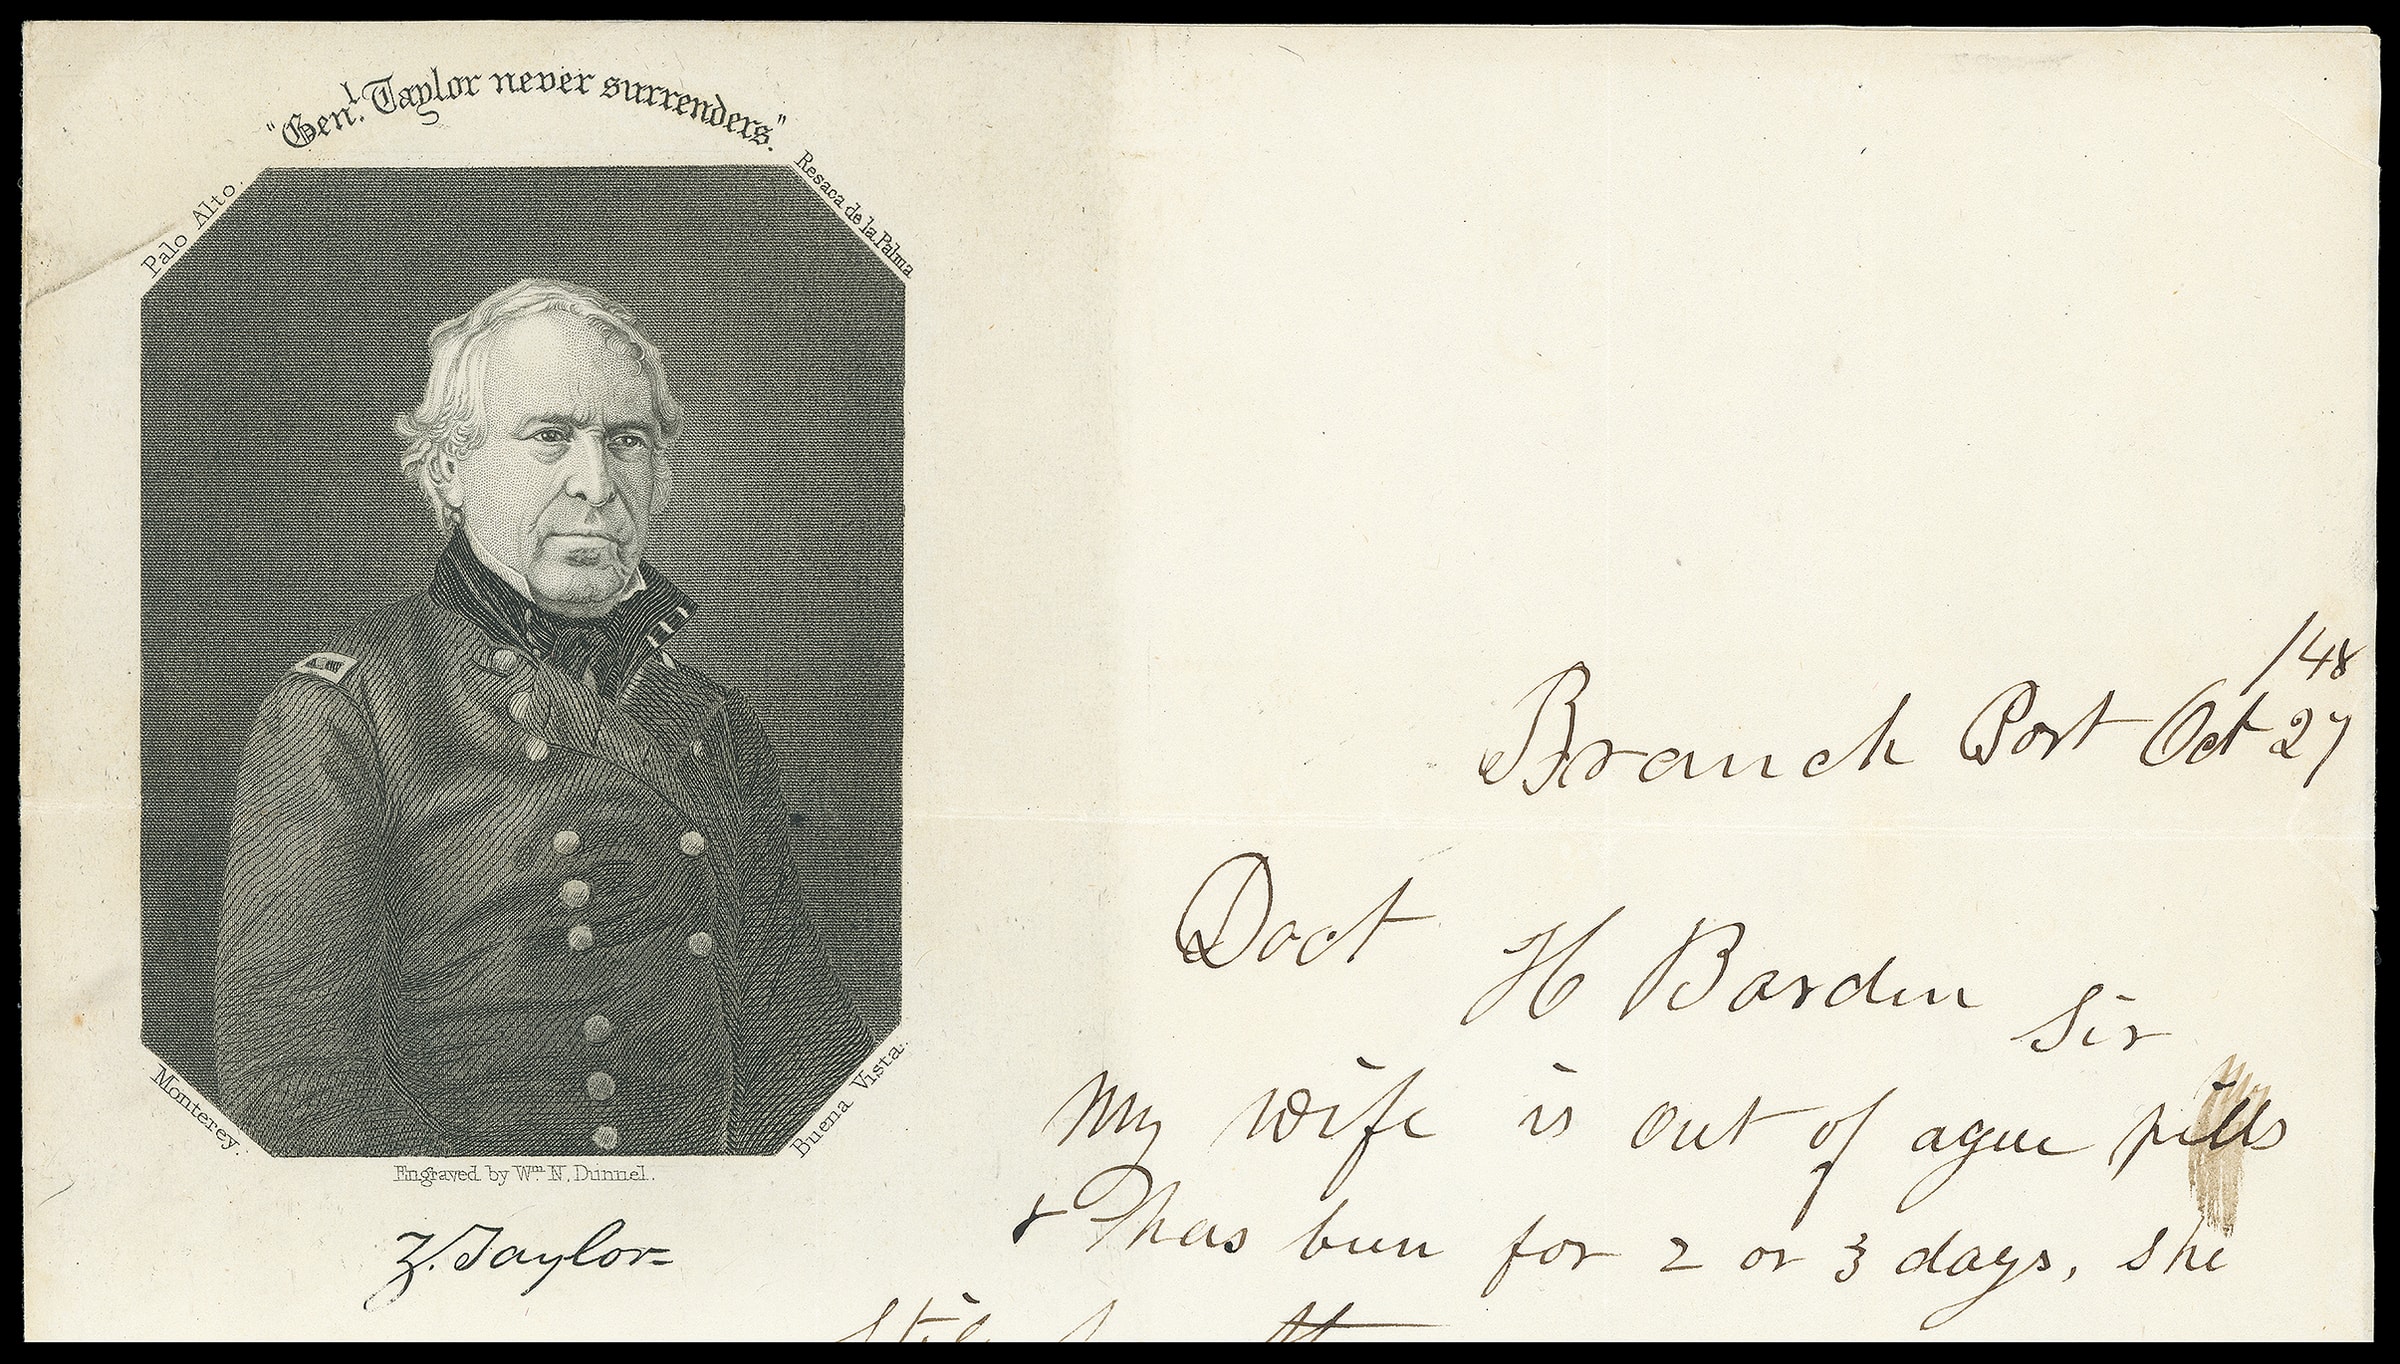 "Gen.l Taylor never surrenders."
Palo Alto.
Resaca de la Palma
Monterey.
Buena Vista.
Engraved by Wm. N. Dunnel.
Z. Taylor
/48
Branch Port Oct 27
Doct H Barden Sir
My wife is out of ague pills
& has been for 2 or 3 days, she